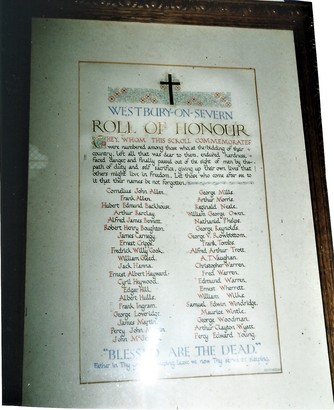 WESTBURY-ON-SEVERN
ROLL OF HONOUR
THEY WHOM THIS SCROLL COMMEMORATES
were numbered among those who at the bidding of their
country, left all that was dear to them, endured hardness,
faced danger, and finally passed out of the sight of men by the
path of duty and self sacrifice, giving up their own lives that
others might live in freedom. Let those who come after see to
it that their names be not forgotten.
Cornelius John Allen.
Frank Allen.
Hubert Edmund Backhouse.
Arthur Barclay.
Alfred James Bennett.
Robert Henry Boughton.
James Carnegy.
Ernest Cripps.
Fredrick Willy Cook.
William Gleed.
Jack Hanna.
Ernest Albert Hayward.
Cyril Heywood.
Edgar Hill.
Albert Hulls.
Frank Ingram.
George Loveridge.
James Martin
Percy John
John
George Mills.
Arthur Morris.
Reginald Nicks.
William George Owen.
Nathaniel Phelps.
George Reynolds.
George V. Rowbottom.
Frank Tombs.
Alfred Arthur Trott.
A. T. Vaughan.
Christopher Warren.
Fred Warren.
Edmund Warren.
Ernest Wherrett.
William Wilks.
Samuel Edwin Windridge.
Maurice Wintle.
George Woodman.
Arthur Clayton Wyatt.
Percy Edward Young.
"BLESSED ARE THE DEAD"
Father in Thy gracious keeping leave we now Thy servants sleeping